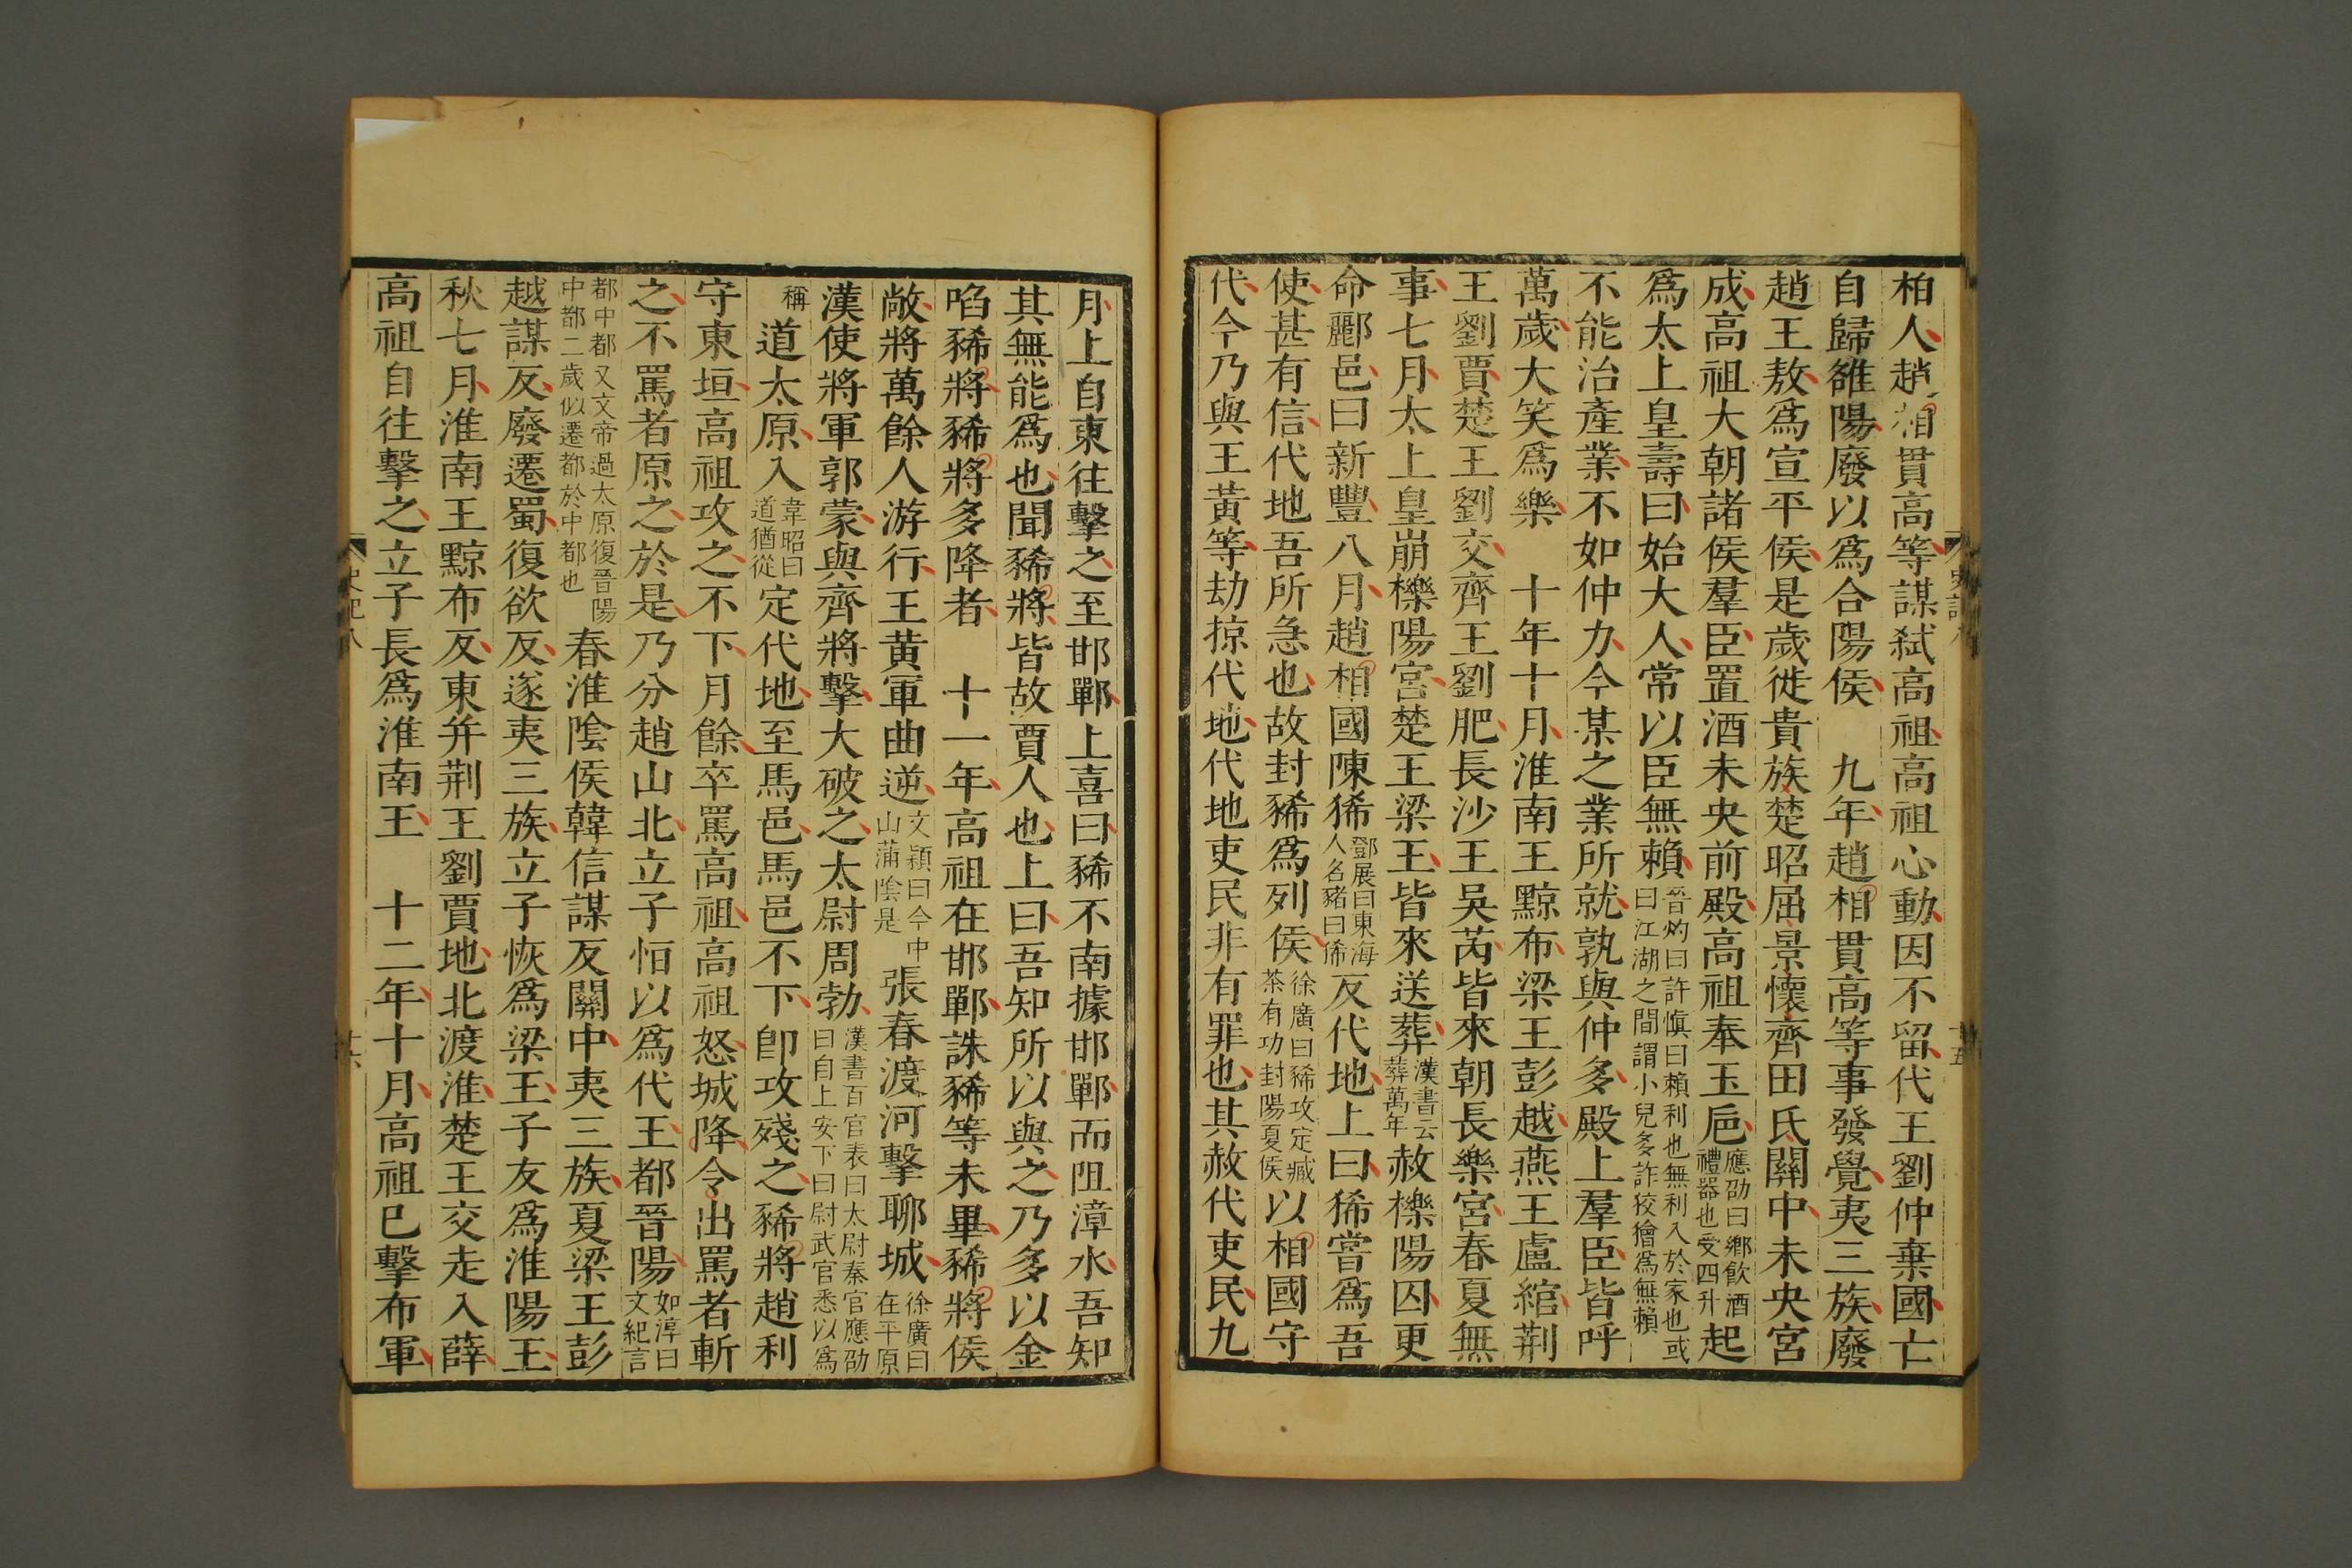 柏人趙相貫高等謀弑高祖高祖心動因不留代王劉仲棄國亡
自歸雒陽廢以爲合陽侯　九年趙相貫高等事發覺夷三族廢
趙王敖爲宣平侯是歲徙貴族楚昭屈景懷齊田氏關中未央宮
成高祖大朝諸侯羣臣置酒未央前殿高祖奉玉巵應劭曰鄉飲酒禮器也受四升起
爲太上皇壽曰始大人常以臣無賴晉灼曰許愼曰賴利也無利入於家也或曰江湖之間謂小兒多詐狡獪爲無賴
不能治產業不如仲力今某之業所就孰與仲多殿上羣臣皆呼
萬歲大笑爲樂　十年十月淮南王黥布梁王彭越燕王盧綰荆
王劉賈楚王劉交齊王劉肥長沙王吳芮皆來朝長樂宮春夏無
事七月太上皇崩櫟陽宮楚王梁王皆來送葬漢書云葬萬年赦櫟陽囚更
命酈邑曰新豐八月趙相國陳豨鄧展曰東海人名豬曰豨反代地上曰豨嘗爲吾
使甚有信代地吾所急也故封豨爲列侯徐廣曰豨攻定臧荼有功封陽夏侯以相國守
代今乃與王黃等劫掠代地代地吏民非有罪也其赦代吏民九
史記八
十五
月上自東往擊之至邯鄲上喜曰豨不南據邯鄲而阻漳水吾知
其無能爲也聞豨將皆故賈人也上曰吾知所以與之乃多以金
啗豨將豨將多降者　十一年高祖在邯鄲誅豨等未畢豨將侯
敞將萬餘人游行王黄軍曲逆文穎曰今中山蒲陰是張春渡河擊聊城徐廣曰在平原
漢使將軍郭蒙與齊將擊大破之太尉周勃漢書百官表曰太尉秦官應劭曰自上安下曰尉武官悉以爲
稱道太原入韋昭曰道猶從定代地至馬邑馬邑不下卽攻殘之豨將趙利
守東垣高祖攻之不下月餘卒罵高祖高祖怒城降令出罵者斬
之不罵者原之於是乃分趙山北立子恒以爲代王都晉陽如淳曰文紀言
都中都又文帝過太原復晉陽中都二歲似遷都於中都也春淮陰侯韓信謀反關中夷三族夏梁王彭
越謀反廢遷蜀復欲反遂夷三族立子恢爲梁王子友爲淮陽王
秋七月淮南王黥布反東并荆王劉賈地北渡淮楚王交走入薛
高祖自往擊之立子長爲淮南王　十二年十月高祖已擊布軍
史記八
十六